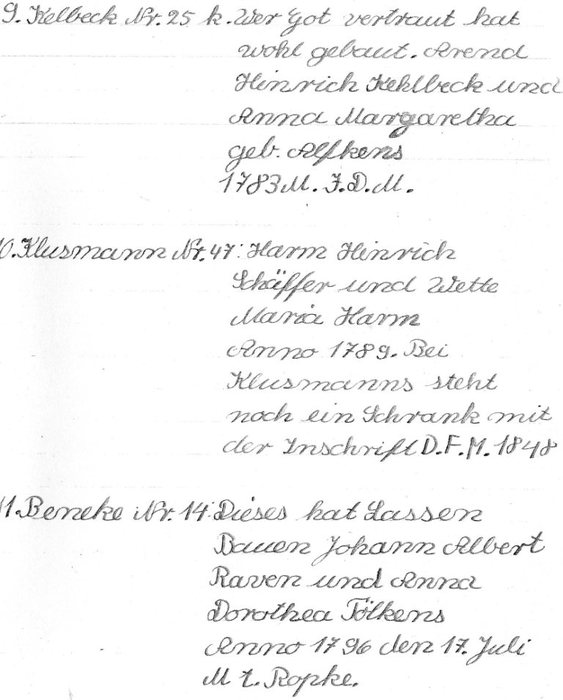 9. Kelbeck Nr. 25 k. Wer Got vertraut hat
wohl gebaut. Arend
Hinrich Kehlbeck und
Anna Margaretha
geb. Alfkens
1783 M. J. D. M.
10. Klusmann Nr. 47: Harm Hinrich
Schäffer und Wette
Maria Harm
Anno 1789. Bei
Klusmanns steht
noch ein Schrank mit
der Inschrift D.F.M. 1848
11. Beneke Nr. 14: Dieses hat Lassen
Bauen Johann Albert
Raven und Anna
Dorothea Tölkens
Anno 1796 den 17. Juli
M t. Ropke.